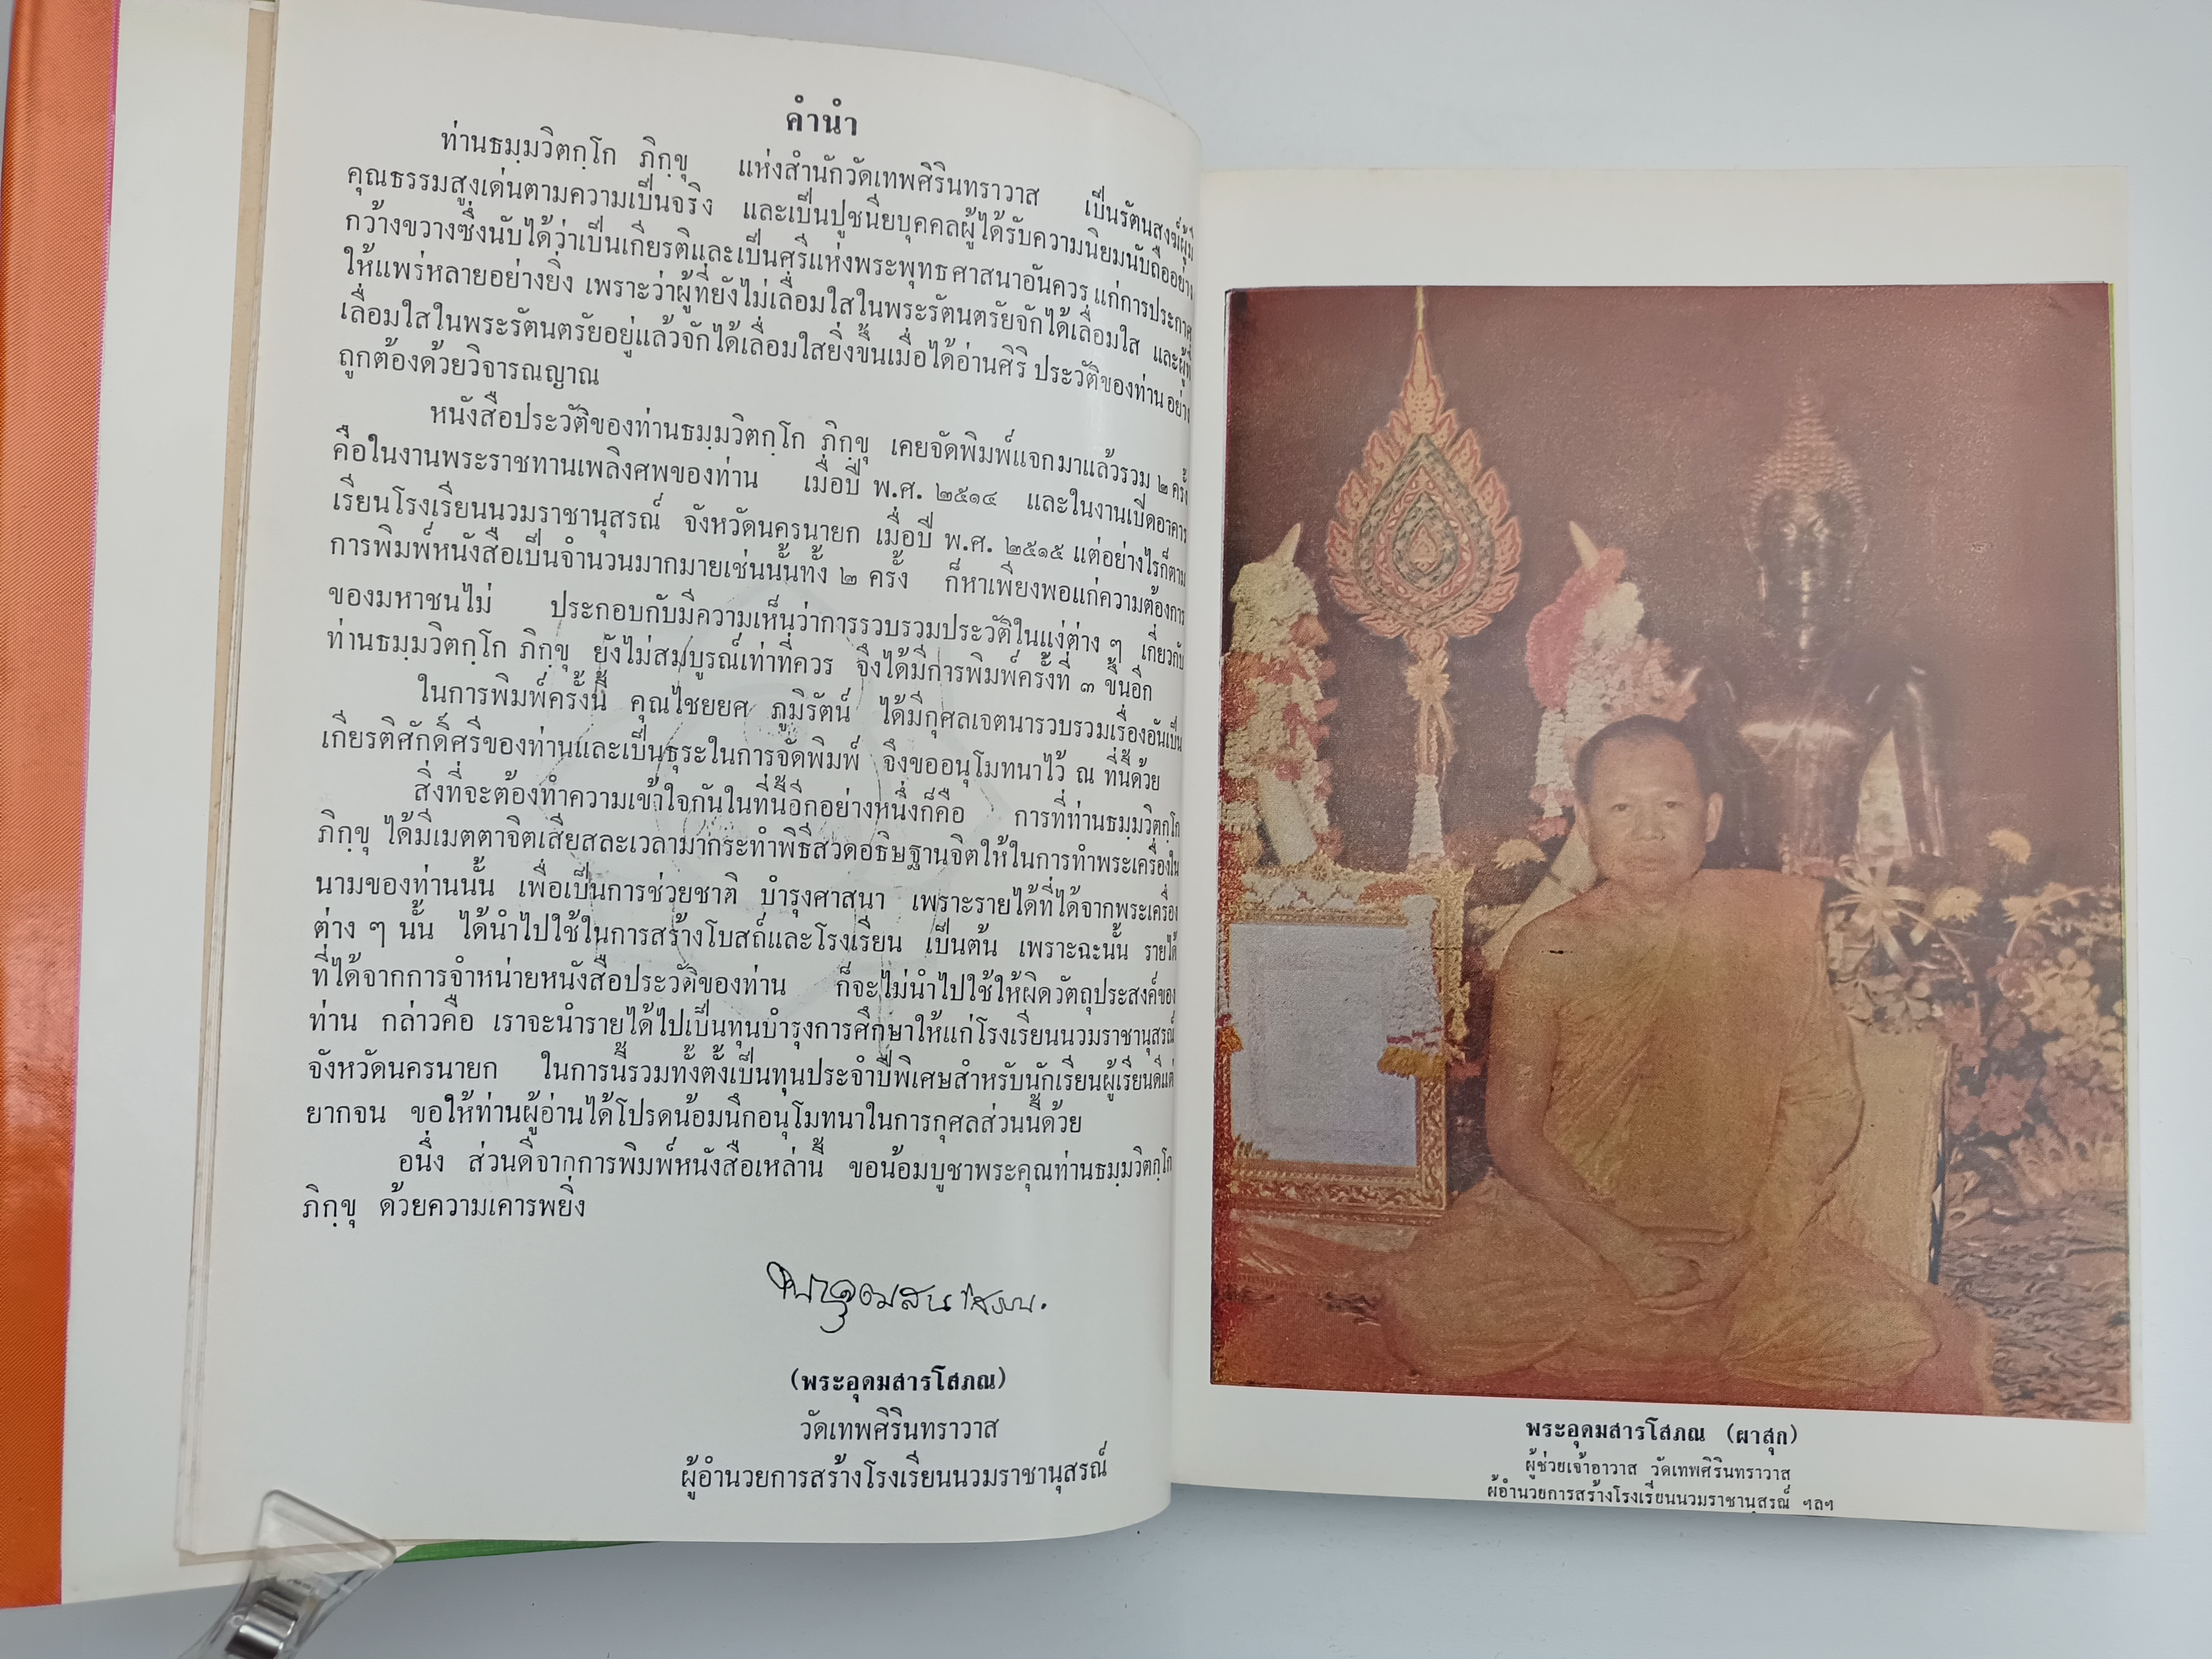 คำนำ
ท่านธมฺมวิตกฺโก ภิกฺขุ แห่งสำนักวัดเทพศิรินทราวาส เป็นรัตนสงฆ์ผู้มี
คุณธรรมสูงเด่นตามความเป็นจริง และเป็นปูชนียบุคคลผู้ได้รับความนิยมนับถืออย่าง
กว้างขวางซึ่งนับได้ว่าเป็นเกียรติและเป็นศรีแห่งพระพุทธศาสนาอันควร แก่การประกาศ
ให้แพร่หลายอย่างยิ่ง เพราะว่าผู้ที่ยังไม่เลื่อมใสในพระรัตนตรัยจักได้เลื่อมใส และผู้ที่
เลื่อมใสในพระรัตนตรัยอยู่แล้วจักได้เลื่อมใสยิ่งขึ้นเมื่อได้อ่านศิริ ประวัติของท่าน อย่าง
ถูกต้องด้วยวิจารณญาณ
หนังสือประวัติของท่านธมฺมวิตกฺโก ภิกฺขุ เคยจัดพิมพ์แจกมาแล้วรวม ๒ ครั้ง
คือในงานพระราชทานเพลิงศพของท่าน เมื่อปี พ.ศ. ๒๕๑๔ และในงานเปิดอาคาร
เรียนโรงเรียนนวมราชานุสรณ์ จังหวัดนครนายก เมื่อปี พ.ศ. ๒๕๑๕ แต่อย่างไรก็ตาม
การพิมพ์หนังสือเป็นจำนวนมากมายเช่นนั้นทั้ง ๒ ครั้ง ก็หาเพียงพอแก่ความต้องการ
ของมหาชนไม่ ประกอบกับมีความเห็นว่าการรวบรวมประวัติในแง่ต่าง ๆ เกี่ยวกับ
ท่านธมฺมวิตกฺโก ภิกฺขุ ยังไม่สมบูรณ์เท่าที่ควร จึงได้มีการพิมพ์ครั้งที่ ๓ ขึ้นอีก
ในการพิมพ์ครั้งนี้ คุณไชยยศ ภูมิรัตน์ ได้มีกุศลเจตนารวบรวมเรื่องอันเป็น
เกียรติศักดิ์ศรีของท่านและเป็นธุระในการจัดพิมพ์ จึงขออนุโมทนาไว้ ณ ที่นี้ด้วย
สิ่งที่จะต้องทำความเข้าใจกันในที่นี้อีกอย่างหนึ่งก็คือ การที่ท่านธมฺมวิตกฺโก
ภิกฺขุ ได้มีเมตตาจิตเสียสละเวลามากระทำพิธีสวดอธิษฐานจิตให้ในการทำพระเครื่องใน
นามของท่านนั้น เพื่อเป็นการช่วยชาติ บำรุงศาสนา เพราะรายได้ที่ได้จากพระเครื่อง
ต่าง ๆ นั้น ได้นำไปใช้ในการสร้างโบสถ์และโรงเรียน เป็นต้น เพราะฉะนั้น รายได้
ที่ได้จากการจำหน่ายหนังสือประวัติของท่าน ก็จะไม่นำไปใช้ให้ผิดวัตถุประสงค์ของ
ท่าน กล่าวคือ เราจะนำรายได้ไปเป็นทุนบำรุงการศึกษาให้แก่โรงเรียนนวมราชานุสรณ์
จังหวัดนครนายก ในการนี้รวมทั้งตั้งเป็นทุนประจำปีพิเศษสำหรับนักเรียนผู้เรียนดีแต่
ยากจน ขอให้ท่านผู้อ่านได้โปรดน้อมนึกอนุโมทนาในการกุศลส่วนนี้ด้วย
อนึ่ง ส่วนดีจากการพิมพ์หนังสือเหล่านี้ ขอน้อมบูชาพระคุณท่านธมฺมวิตกฺโก
ภิกฺขุ ด้วยความเคารพยิ่ง
(พระอุดมสารโสภณ)
วัดเทพศิรินทราวาส
ผู้อำนวยการสร้างโรงเรียนนวมราชานุสรณ์
พระอุดมสารโสภณ (ผาสุก)
ผู้ช่วยเจ้าอาวาส วัดเทพศิรินทราวาส
ผู้อำนวยการสร้างโรงเรียนนวมราชานุสรณ์ ฯลฯ